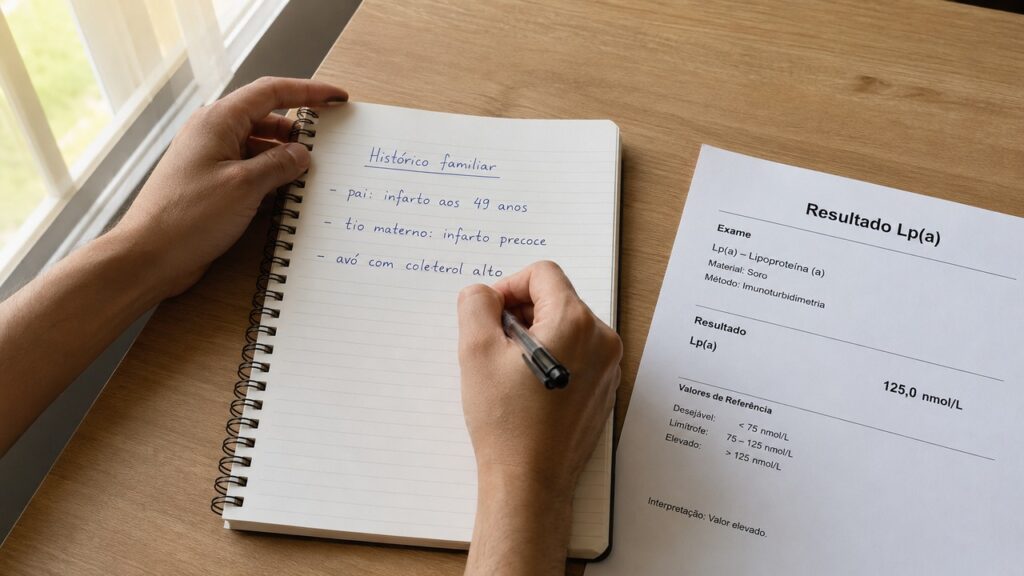 Histórico familiar
- pai: infarto aos 49 anos
- tio materno: infarto precoce
- avó com coleterol alto
Resultado Lp(a)
Exame
Lp(a) – Lipoproteína (a)
Material: Soro
Método: Imunoturbidimetria
Resultado
Lp(a)
125,0 nmol/L
Valores de Referência
Desejável: < 75 nmol/L
Limítrofe: 75 – 125 nmol/L
Elevado: > 125 nmol/L
Interpretação: Valor elevado.